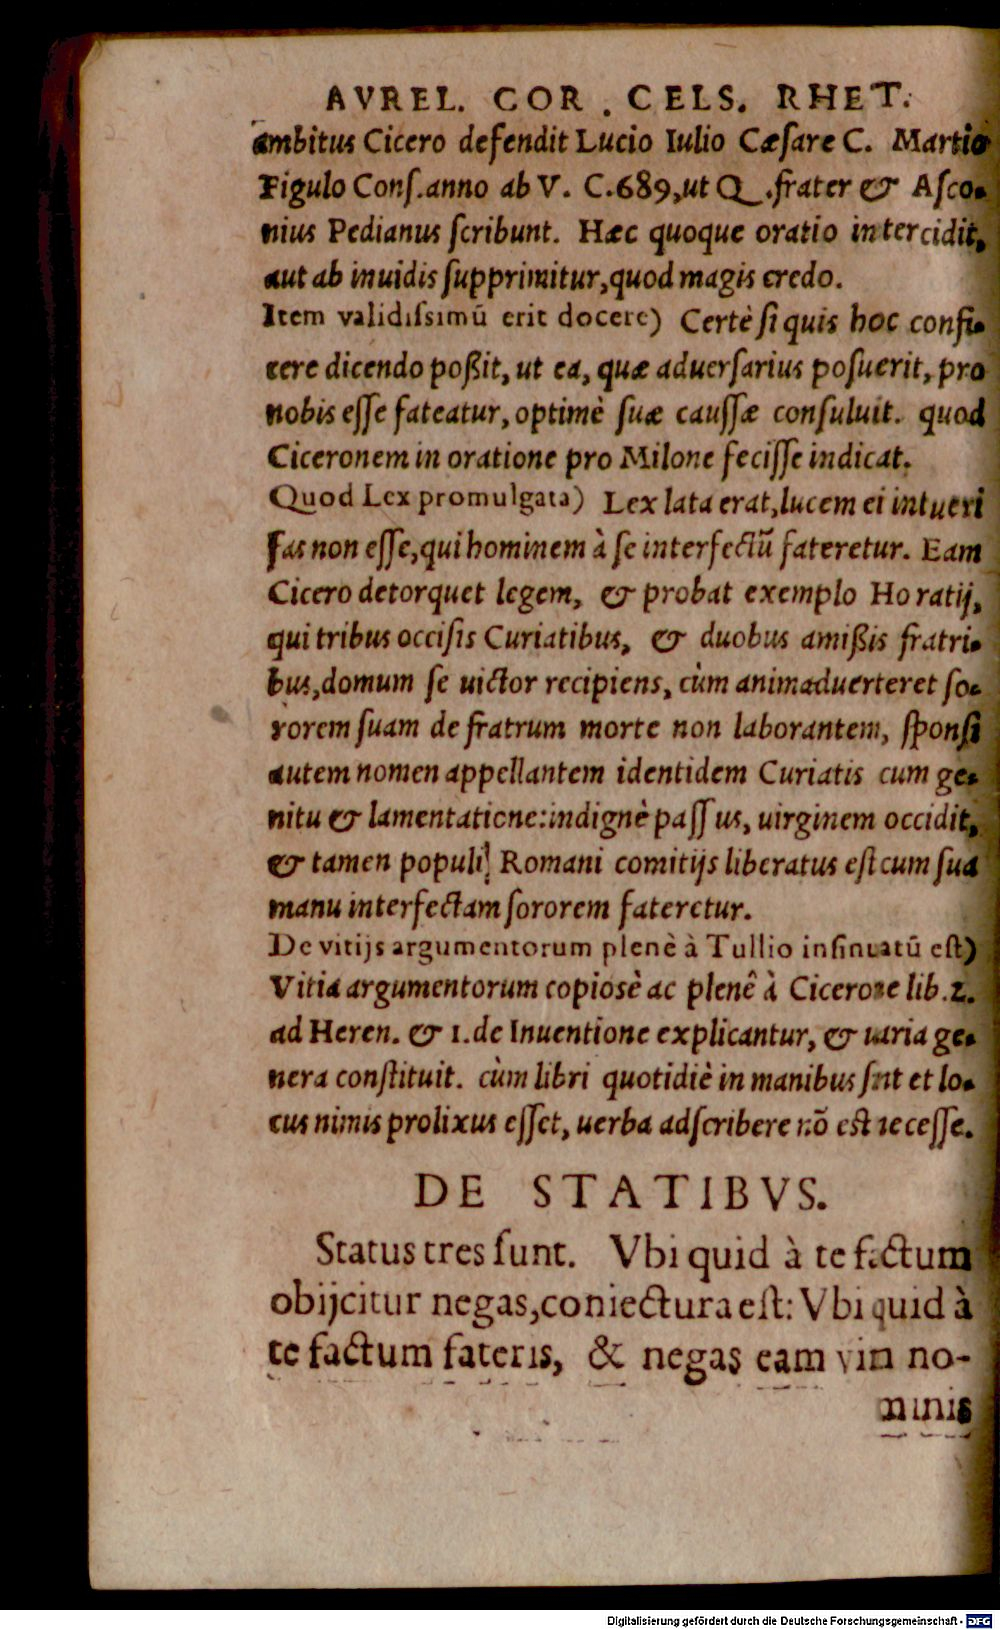 AVREL. COR. CELS. RHET.
ambitus Cicero defendit Lucio Iulio Cæsare C. Martio
Figulo Cons. anno ab V. C. 689, ut Q. frater & Asco-
nius Pedianus scribunt. Hæc quoque oratio intercidit,
aut ab inuidis supprimitur, quod magis credo.
Item validissimũ erit docere) Certè si quis hoc confi-
cere dicendo poßit, ut ea, quæ aduersarius posuerit, pro
nobis esse fateatur, optimè suæ caussæ consuluit. quod
Ciceronem in oratione pro Milone fecisse indicat.
Quod Lex promulgata) Lex lata erat, lucem ei intueri
fas non esse, qui hominem à se interfectũ fateretur. Eam
Cicero detorquet legem, & probat exemplo Horatij,
qui tribus occisis Curiatibus, & duobus amißis fratri-
bus, domum se uictor recipiens, cùm animaduerteret so-
rorem suam de fratrum morte non laborantem, sponsi
autem nomen appellantem identidem Curiatis cum ge-
nitu & lamentatione: indignè passus, uirginem occidit,
& tamen populi Romani comitijs liberatus est cum sua
manu interfectam sororem fateretur.
De vitijs argumentorum plenè à Tullio insinuatũ est)
Vitia argumentorum copiosè ac plenê à Cicerone lib. 2.
ad Heren. & 1. de Inuentione explicantur, & uaria ge-
nera constituit. cùm libri quotidiè in manibus sint et lo-
cus nimis prolixus esset, uerba adscribere nõ est necesse.
DE STATIBVS.
Status tres sunt. Vbi quid à te factum
obijcitur negas, coniectura est: Vbi quid à
te factum fateris, & negas eam vim no-
minis
Digitalisierung gefördert durch die Deutsche Forschungsgemeinschaft - DFG